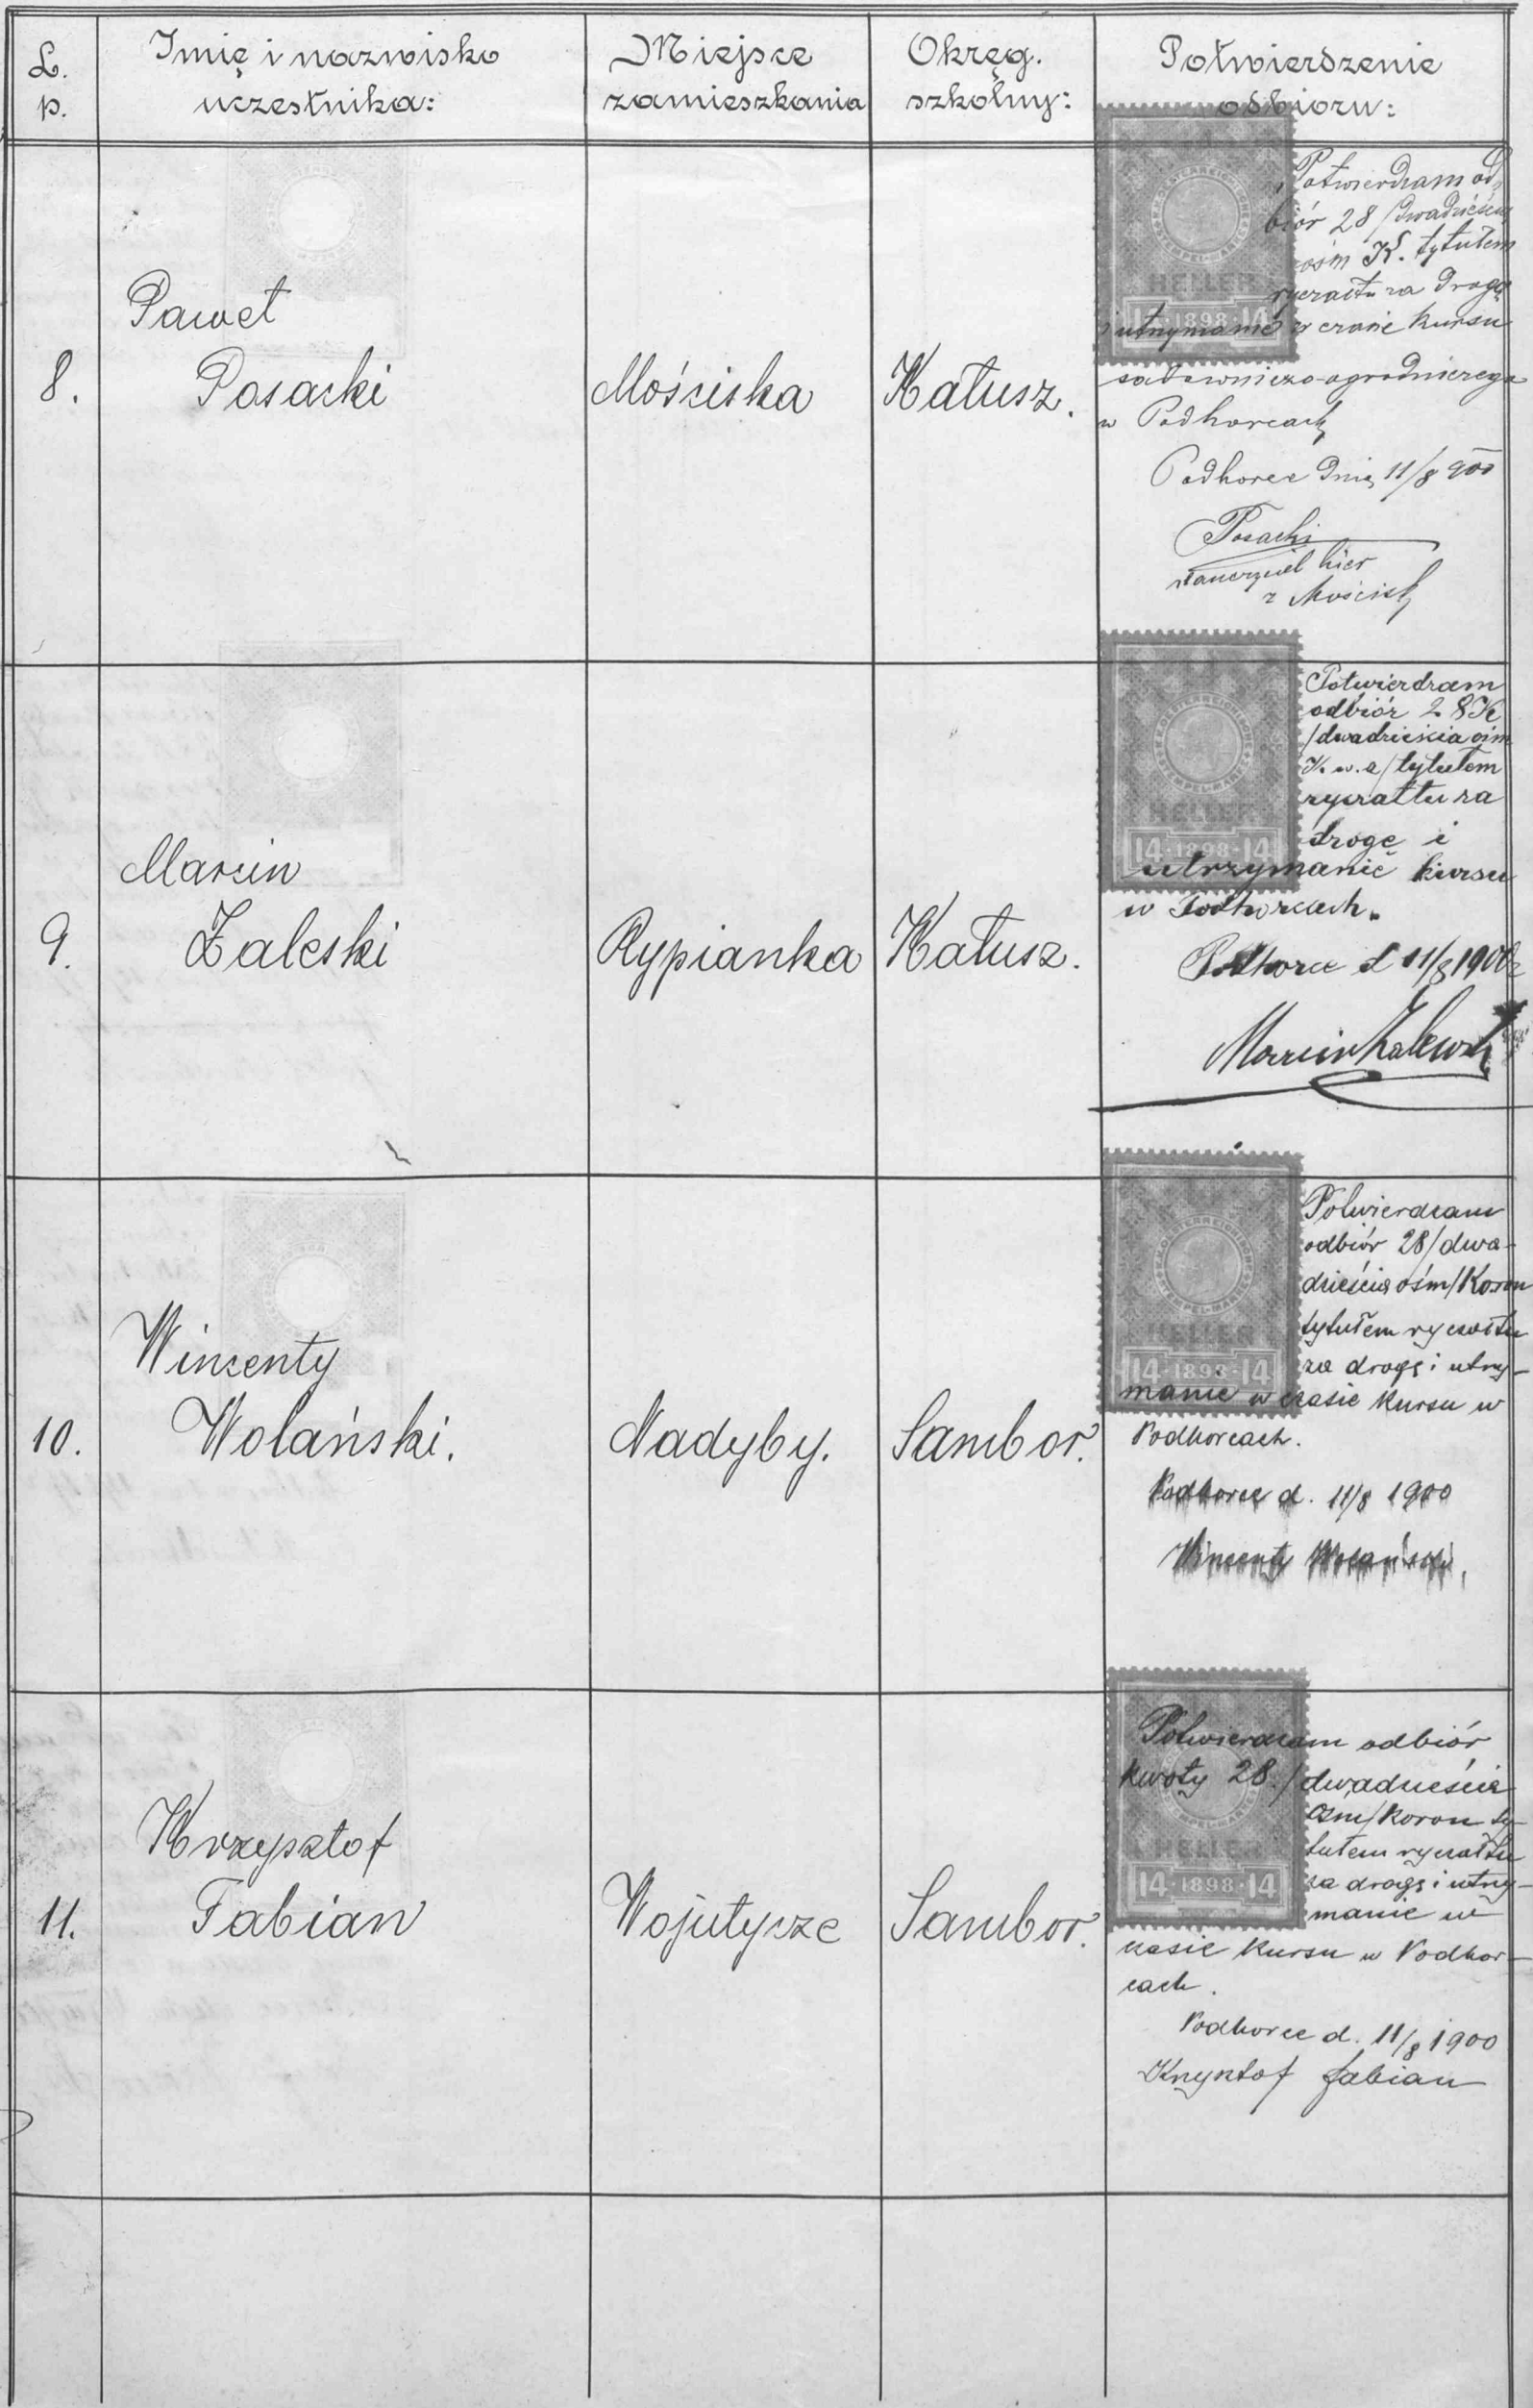 L. p.
Imię i nazwisko uczestnika:
Miejsce zamieszkania
Okręg. szkolny:
Potwierdzenie odbioru:
8.
Paweł
Posacki
Mościska
Kałusz.
Potwierdzam od-
biór 28 /dwadzieścia
ośm K. tytułem
ryczałtu za drogę
i utrzymanie w czasie kursu
sadowniczo-ogrodniczego
w Podhorcach
Podhorce dnia 11/8 900
Posacki
naucyciel kier
z Mościsk
HELLER
14·1898·14
9.
Marcin
Zaleski
Rypianka
Kałusz.
Potwierdzam
odbiór 28 K
/dwadzieścia ośm
K. w. a/ tytułem
ryczałtu za
drogę i
utrzymanie kursu
w Podhorcach.
Podhorce d 11/8 1900
Marcin Zalewski
HELLER
14·1898·14
10.
Wincenty
Wolański.
Nadyby.
Sambor.
Potwierdzam
odbiór 28/dwa-
dzieścia ośm/Koron
tytułem ryczałtu
za drogę i utrzy-
manie w czasie kursu w
Podhorcach.
Podhorce d. 11/8 1900
Wincenty Wolański,
HELLER
14·1898·14
11.
Krzysztof
Fabian
Wojutycze
Sambor.
Potwierdzam odbiór
kwoty 28./dwadzieścia
ośm/koron ty-
tułem ryczałtu
za drogę i utrzy-
manie w
czasie kursu w Podhor-
cach.
Podhorce d. 11/8 1900
Krzysztof Fabian
HELLER
14·1898·14